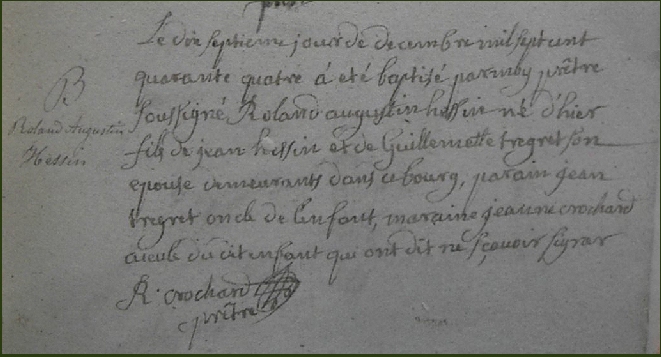 B
Roland Augustin
Hessin
Le dix septieme jour de decembre mil sept cent
quarante quatre á eté baptisé par moy prêtre
soussigné Roland augustin hessin né d'hier
fils de jean hessin et de Guillemette tregret son
epouse demeurants dans ce bourg, parain jean
tregret oncle de l'enfant, maraine jeanne crochard
aieule du dit enfant qui ont dit ne sçavoir signer
R. crochard
prêtre